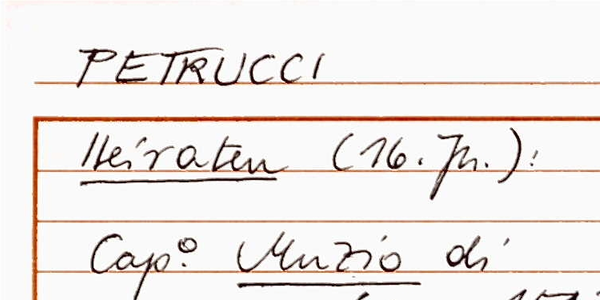 PETRUCCI
Heiraten (16. Jh.):
Cap.º Muzio di